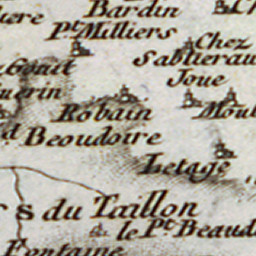 Bardin
Pt. Milliers
Chez
Sablierau
Joue
Robain
Beoudoire
Letage
s du Taillon
le Pt. Beaud
Fontaine